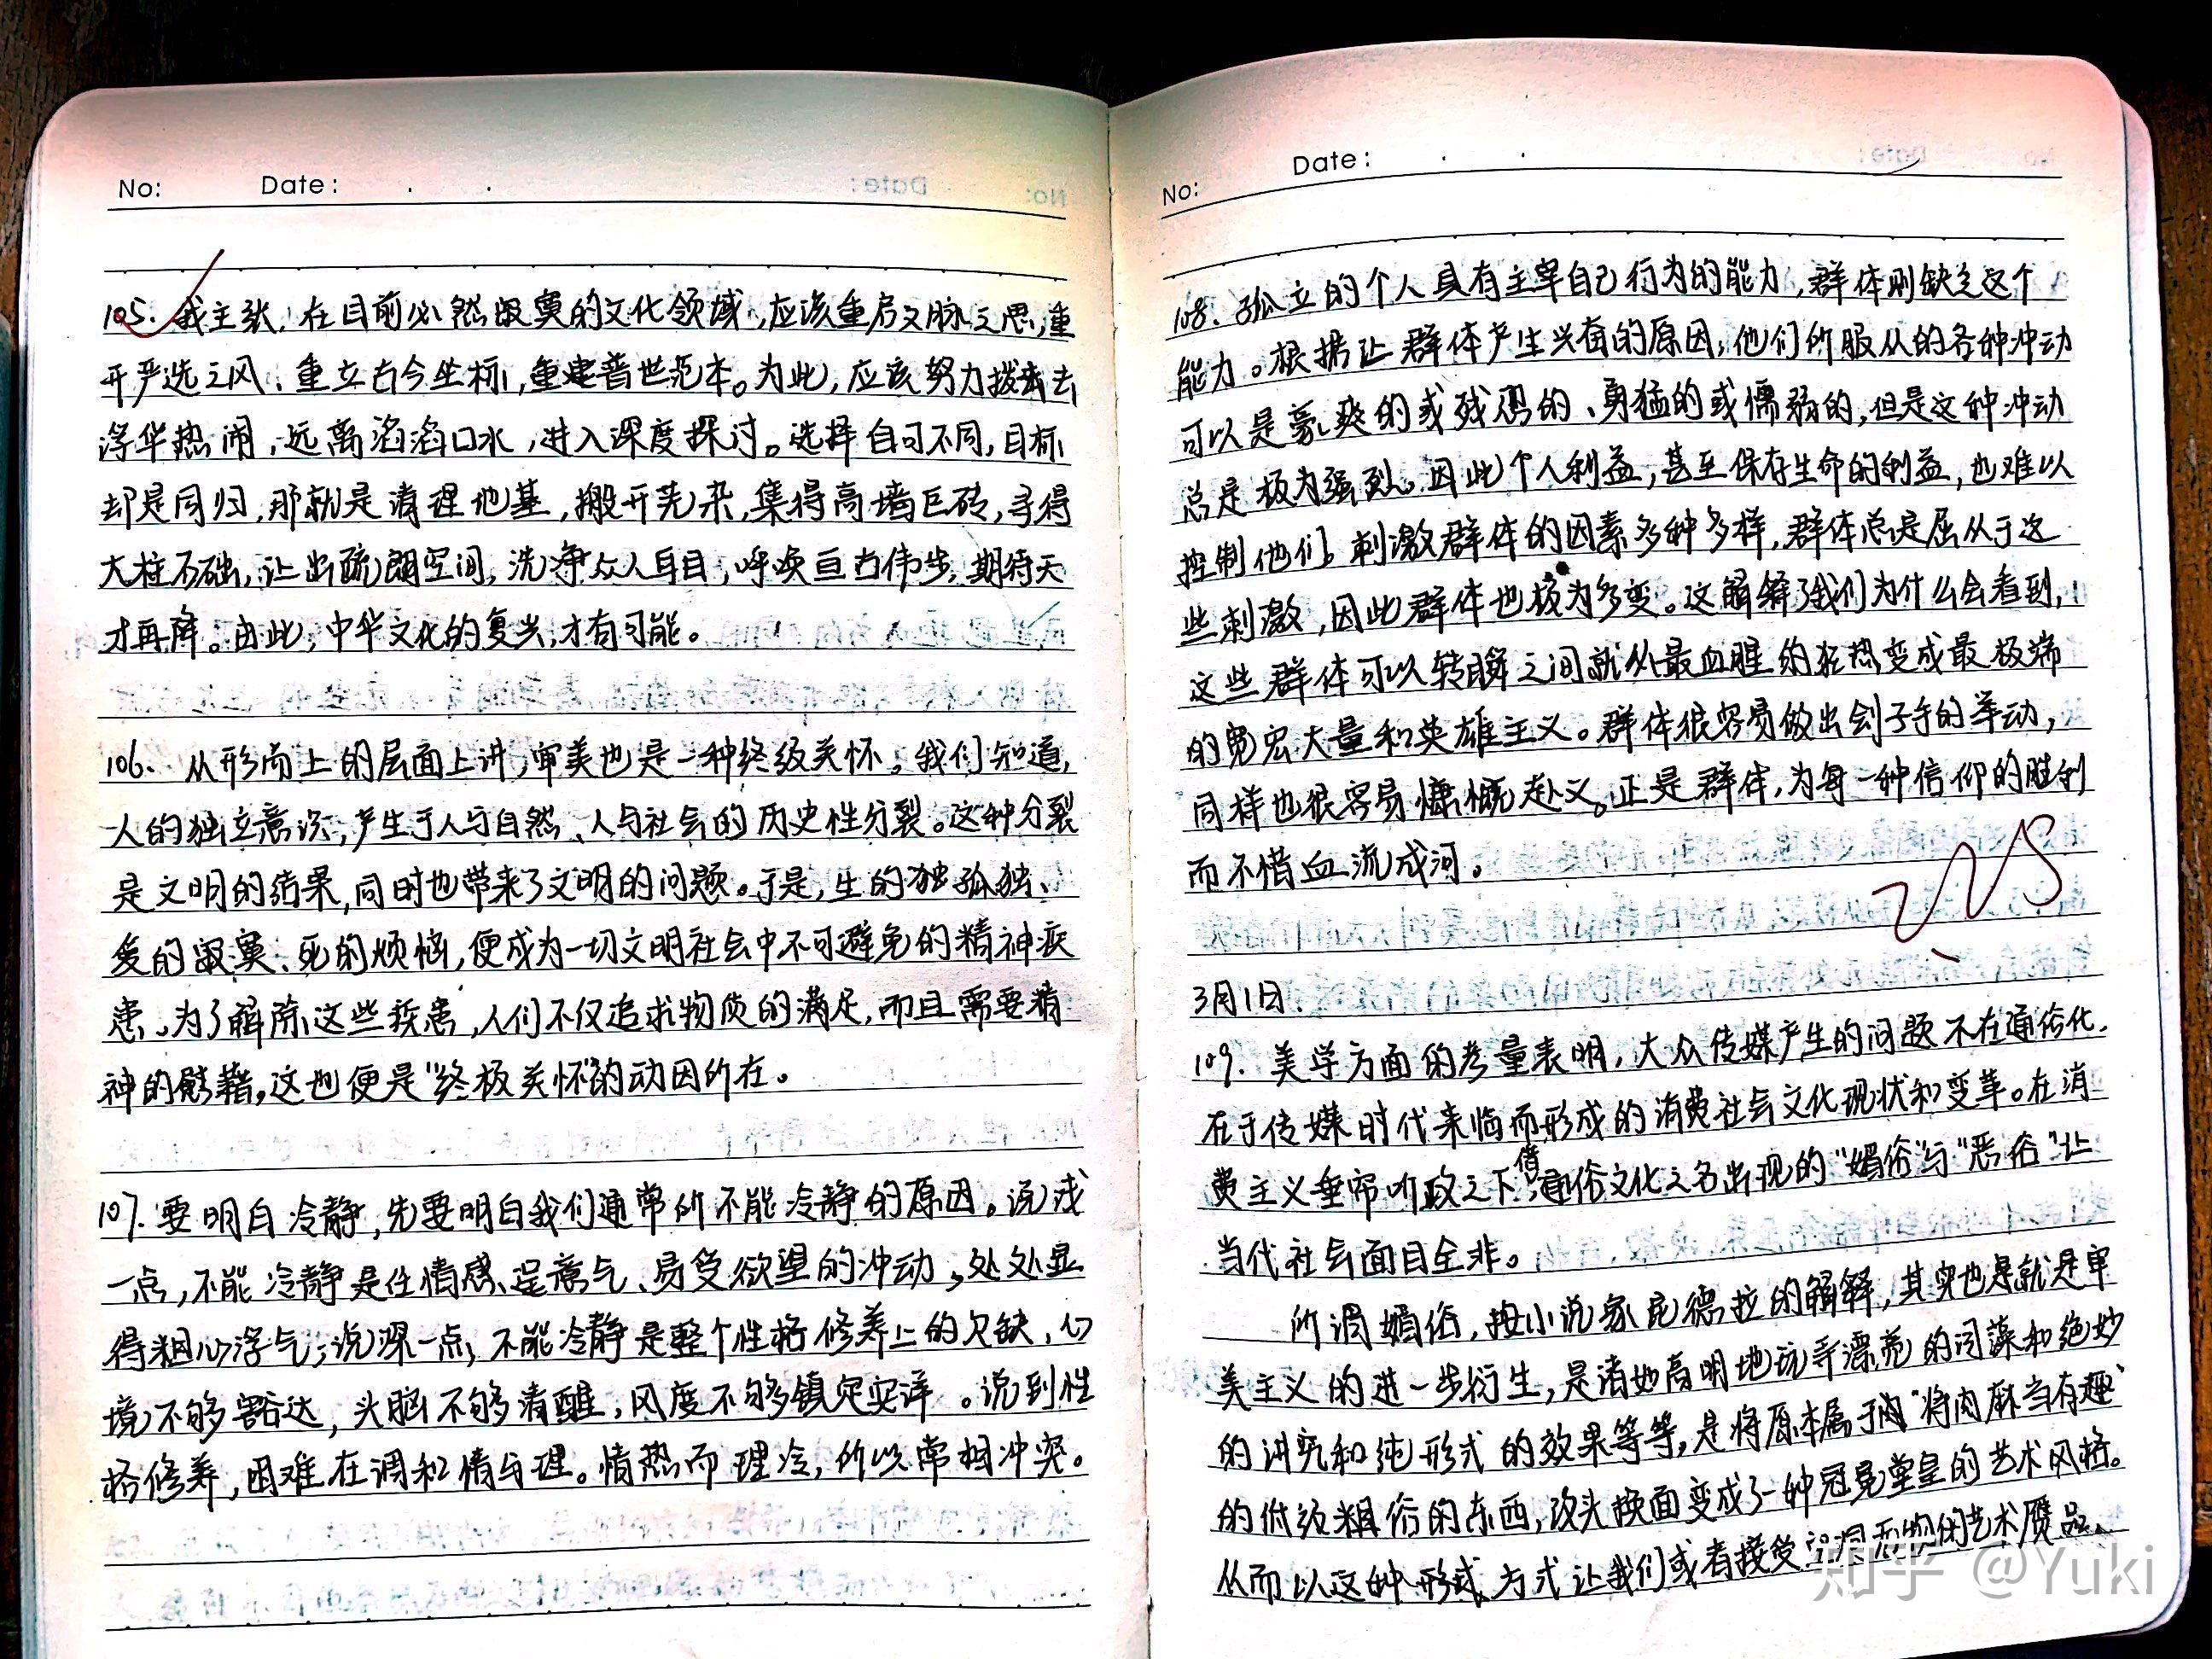 No: Date: . .
105. 我主张,在目前必然寂寞的文化领域,应该重启文脉之思,重
开严选之风、重立古今坐标,重建普世范本。为此,应该努力拨去
浮华热闹,远离滔滔口水,进入深度探讨。选择自可不同,目标
却是同归,那就是清理地基,搬开芜杂,集得高墙巨砖,寻得
大柱石础,让出疏朗空间,洗净众人耳目,呼唤亘古伟步,期待天
才再降。由此,中华文化的复兴,才有可能。
106. 从形而上的层面上讲,审美也是一种终级关怀。我们知道,
人的独立意识,产生于人与自然、人与社会的历史性分裂。这种分裂
是文明的结果,同时也带来了文明的问题。于是,生的独孤独、
爱的寂寞、死的烦恼,便成为一切文明社会中不可避免的精神疾
患。为了解除这些疾患,人们不仅追求物质的满足,而且需要精
神的慰藉,这也便是“终极关怀”的动因所在。
107. 要明白冷静,先要明白我们通常所不能冷静的原因。说浅
一点,不能冷静是任情感、逞意气、易受欲望的冲动,处处显
得粗心浮气;说深一点,不能冷静是整个性格修养上的欠缺,心
境不够豁达,头脑不够清醒,风度不够镇定安详。说到性
格修养,困难在调和情与理。情热而理冷,所以常相冲突。
No: Date: . .
108. 孤立的个人具有主宰自己行为的能力,群体则缺乏这个
能力。根据让群体产生兴奋的原因,他们所服从的各种冲动
可以是豪爽的或残忍的、勇猛的或懦弱的,但是这种冲动
总是极为强烈。因此个人利益,甚至保存生命的利益,也难以
控制他们。刺激群体的因素多种多样,群体总是屈从于这
些刺激,因此群体也极为多变。这解释了我们为什么会看到,
这些群体可以转瞬之间就从最血腥的狂热变成最极端
的宽宏大量和英雄主义。群体很容易做出刽子手的举动,
同样也很容易慷慨赴义。正是群体,为每一种信仰的胜利
而不惜血流成河。
3月1日.
109. 美学方面的考量表明,大众传媒产生的问题不在通俗化,
在于传媒时代来临而形成的消费社会文化现状和变革。在消
费主义垂帘听政之下,借通俗文化之名出现的“媚俗”与“恶俗”让
当代社会面目全非。
所谓媚俗,按小说家昆德拉的解释,其实也是就是审
美主义的进一步衍生,是诸如高明地玩弄漂亮的词藻和绝妙
的讲究和纯形式的效果等等,是将原本属于“将肉麻当有趣”
的低级粗俗的东西,改头换面变成了一种冠冕堂皇的艺术风格。
从而以这种形式、方式让我们或者接受空洞无物的艺术赝品、
知乎 @Yuki